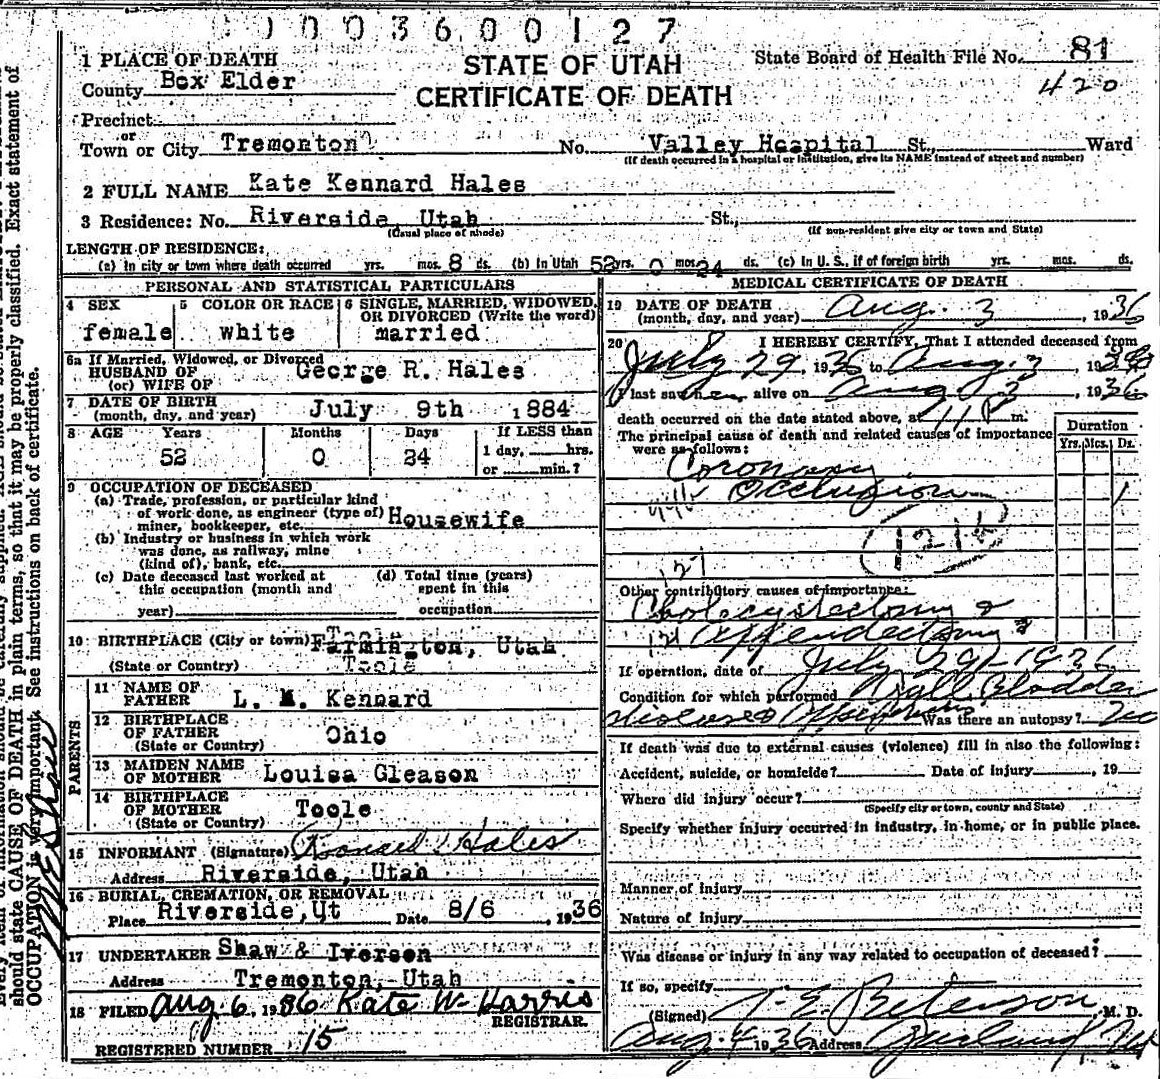 1003600127
1 PLACE OF DEATH
STATE OF UTAH
State Board of Health File No. 81
County Box Elder
CERTIFICATE OF DEATH
420
Precinct
or
Town or City Tremonton No. Valley Hospital St., Ward
(If death occurred in a hospital or institution, give its NAME instead of street and number)
2 FULL NAME Kate Kennard Hales
3 Residence: No. Riverside, Utah St.,
(Usual place of abode) (If non-resident give city or town and State)
LENGTH OF RESIDENCE:
(a) In city or town where death occurred yrs. mos. 8 ds. (b) In Utah 52 yrs. 0 mos. 24 ds. (c) In U. S., if of foreign birth yrs. mos. ds.
PERSONAL AND STATISTICAL PARTICULARS
4 SEX
female
5 COLOR OR RACE
white
6 SINGLE, MARRIED, WIDOWED,
OR DIVORCED (Write the word)
married
6a If Married, Widowed, or Divorced
HUSBAND OF
(or) WIFE OF
George R. Hales
7 DATE OF BIRTH
(month, day, and year) July 9th 1884
8 AGE Years Months Days If LESS than
52 0 24 1 day, hrs.
or min.?
9 OCCUPATION OF DECEASED
(a) Trade, profession, or particular kind
of work done, as engineer (type of)
miner, bookkeeper, etc. Housewife
(b) Industry or business in which work
was done, as railway, mine
(kind of), bank, etc.
(c) Date deceased last worked at
this occupation (month and
year)
(d) Total time (years)
spent in this
occupation
10 BIRTHPLACE (City or town) Farmington, Utah
(State or Country) Toole
PARENTS
11 NAME OF
FATHER L. M. Kennard
12 BIRTHPLACE
OF FATHER Ohio
(State or Country)
13 MAIDEN NAME
OF MOTHER Louisa Gleason
14 BIRTHPLACE
OF MOTHER Toole
(State or Country)
15 INFORMANT (Signature) Hales
Address Riverside, Utah
16 BURIAL, CREMATION, OR REMOVAL
Place Riverside, Ut Date 8/6, 1936
17 UNDERTAKER Shaw & Iverson
Address Tremonton, Utah
18 FILED Aug 6, 1936 Kate W. Harris
REGISTRAR.
REGISTERED NUMBER 15
MEDICAL CERTIFICATE OF DEATH
19 DATE OF DEATH
(month, day, and year) Aug. 3, 1936
20 I HEREBY CERTIFY, That I attended deceased from
July 29, 1936 to Aug. 3, 1936
I last saw her alive on Aug 3, 1936
death occurred on the date stated above, at 11 P m.
The principal cause of death and related causes of importance
were as follows:
Duration
Yrs. Mos. Ds.
Coronary
Occlusion 1
127
Other contributory causes of importance:
Cholecystectomy &
Appendectomy
If operation, date of July 29-1936
Condition for which performed Gall Bladder
disease Was there an autopsy? No
If death was due to external causes (violence) fill in also the following:
Accident, suicide, or homicide? Date of injury , 19
Where did injury occur?
(Specify city or town, county and State)
Specify whether injury occurred in industry, in home, or in public place.
Manner of injury
Nature of injury
Was disease or injury in any way related to occupation of deceased?
If so, specify
(Signed) , M. D.
Aug. 4 1936 Address
should state CAUSE OF DEATH in plain terms, so that it may be properly classified. Exact statement of
OCCUPATION is very important. See instructions on back of certificate.